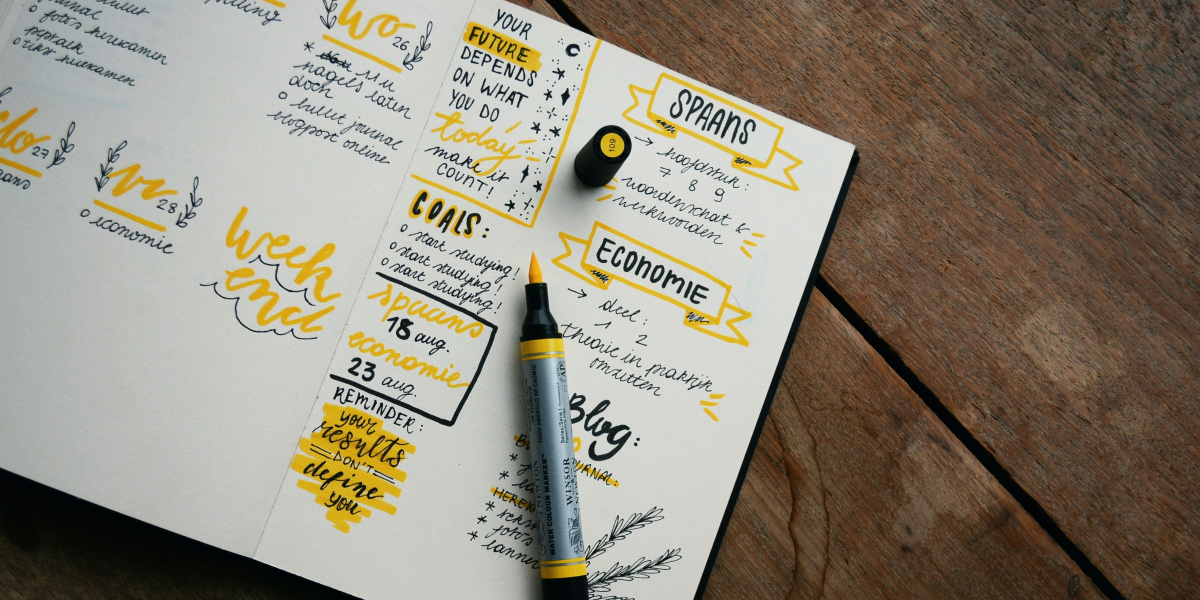 journal
foto's herexamen
peptalk
tekst herexamen
wo 26
11 u
nagels laten
doen
bullet journal
blogpost online
do 27
vr 28
economie
Week
end
YOUR
FUTURE
DEPENDS
ON WHAT
YOU DO
today
make it
COUNT!
GOALS:
start studying!
start studying!
start studying!
spaans
18 aug.
economie
23 aug.
REMINDER:
your
results
DON'T
define
you
SPAANS
→ hoofdstuk:
7 8 9
woordenschat &
werkwoorden
ECONOMIE
→ deel:
1 2
theorie in praktijk
omzetten
Blog:
JOURNAL:
HEREX
foto's
109
WATER COLOUR MARKER
WINSOR
NEWTON